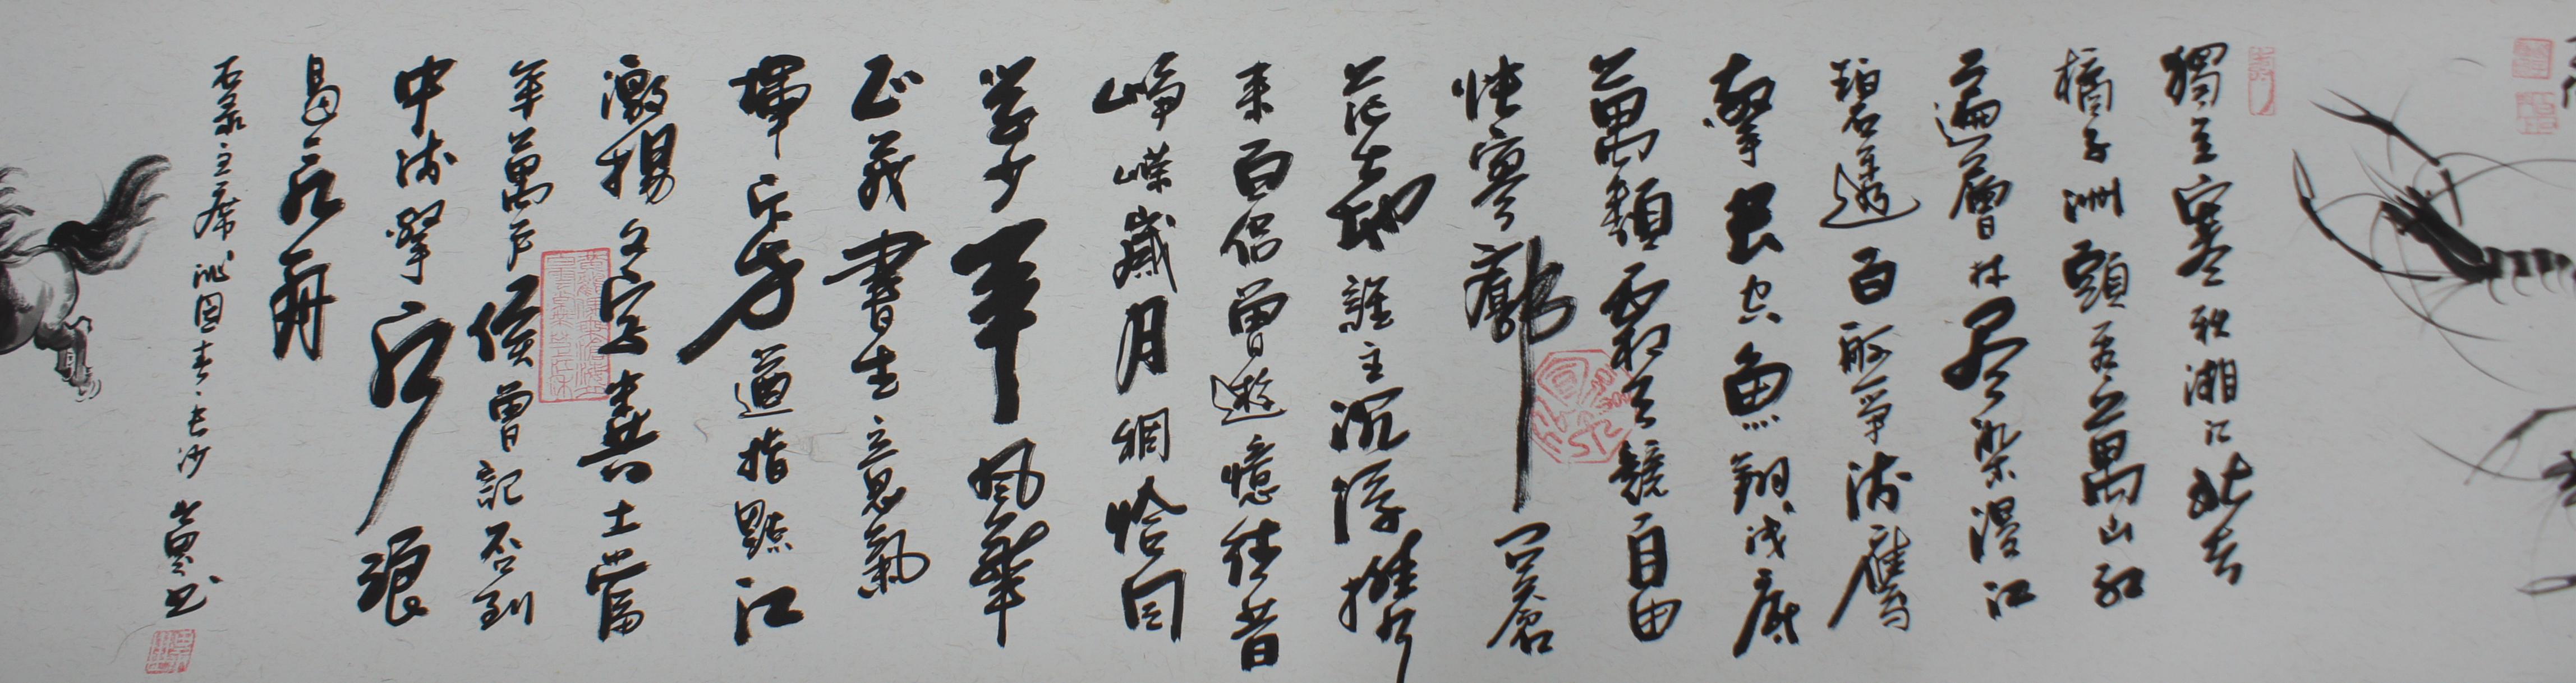 獨立寒秋湘江北去
橘子洲頭看萬山紅
遍層林尽染漫江
碧透百舸爭流鷹
擊長空魚翔淺底
萬類霜天競自由
悵寥廓問蒼
茫大地誰主沉浮攜
來百侶曾遊憶往昔
崢嶸歲月稠恰同
学少年風華
正茂書生意氣
揮斥方遒指點江
激揚文字糞土當
年萬戶侯曾記否到
中流擊水浪
遏飛舟
右录主席沁园春·长沙 书